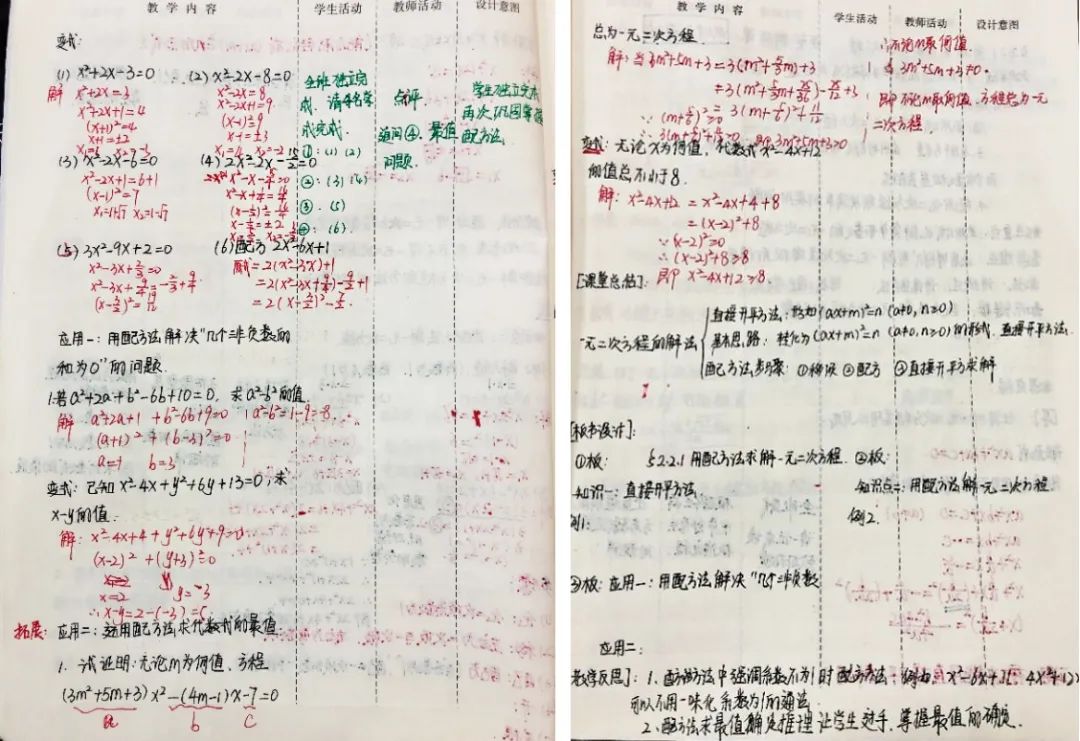 教学内容 学生活动 教师活动 设计意图
变式:
(1) x²+2x-3=0 (2) x²-2x-8=0
解 x²+2x=3 x²-2x=8
x²+2x+1=4 x²-2x+1=9
(x+1)²=4 (x-1)²=9
x+1=±2 x-1=±3
x₁=1 x₂=-3 x₁=4 x₂=-2
(3) x²-2x-6=0 (4) 2x²-2x-15/2=0
x²-2x+1=6+1
(x-1)²=7
x₁=1+√7 x₂=1-√7
(5) 3x²-9x+2=0 (6) 配方 2x²-6x+1
x²-3x+2/3=0 原式=2(x²-3x)+1
x²-3x+9/4=-2/3+9/4 =2(x²-3x+9/4)-9/2+1
(x-3/2)²=19/12 =2(x-3/2)²-7/2
全班独立完
成,请4名学
成完成.
①:(1)(2)
②:(3)(4)
③:(5)
④:(6)
点评
追问④ 最值
问题.
学生独立完成
再次巩固掌握
配方法.
应用一:用配方法解决"几个非负数的
和为0"的问题.
1.若a²+2a+b²-6b+10=0,求a²-b²的值.
解 a²+2a+1+b²-6b+9=0 a²-b²=1-9=-8.
(a+1)²+(b-3)²=0
a=-1 b=3
变式:已知x²-4x+y²+6y+13=0,求
x-y的值.
解:x²-4x+4+y²+6y+9=0
(x-2)²+(y+3)²=0
x=2 y=-3
∴x-y=2-(-3)=5
拓展: 应用二:运用配方法求代数式的最值
1. 试证明:无论m为何值,方程
(3m²+5m+3)x²-(4m-1)x-7=0
a b c
教学内容 学生活动 教师活动 设计意图
总为一元二次方程
解:当3m²+5m+3=3(m²+5/3m)+3
=3(m²+5/3m+25/36)-25/12+3
=3(m+5/6)²+11/12
∵(m+5/6)²≥0
∴3(m+5/6)²+11/12>0 即3m²+5m+3>0
∴不论m取何值
3m²+5m+3≠0.
即不论m取何值,方程总为一元
二次方程.
变式:无论x为何值,代数式x²-4x+12
的值总不小于8.
解:x²-4x+12=x²-4x+4+8
=(x-2)²+8
∵(x-2)²≥0
∴(x-2)²+8≥8
即x²-4x+12≥8.
[课堂总结]:
直接开平方法:形如(ax+m)²=n(a≠0,n≥0)
一元二次方程的解法 基本思路:转化为(ax+m)²=n(a≠0,n≥0)的形式,直接开平方法.
配方法步骤:①移项②配方③直接开平方求解
[板书设计]:
①板: §2.2.1用配方法求解一元二次方程. ②板:
知识一:直接开平方法 知识点二:用配方法解一元二次方程
例1. 例2.
③板:应用一:用配方法解决"几个非负数
应用二:
教学反思]:1.配方法中强调系数不为1时配方方法:例如,x²-6x+3(4x²-4+12)
可以不用一味化系数为1的通法
2.配方法求最值确定推理让学生动手,掌握最值的确定.